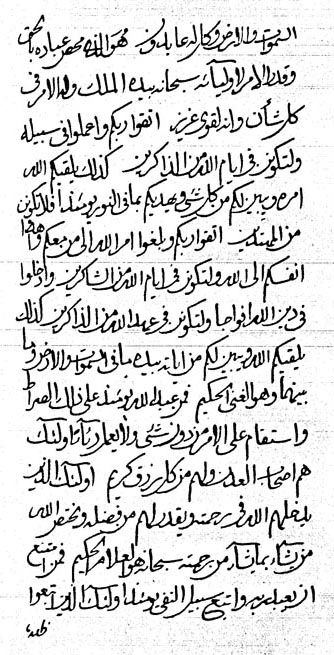 السموات والارض وكل له عابدون هو الذي محص عباده بالحق
وقدر الامر لاوليائه سبحانه بيده الملك وله الامر في
كل شأن وانه لقوي عزيز اتقوا ربكم واعملوا في سبيله
ولتكونن في ايام الله من الذاكرين كذلك يلقيكم الله
امره ويبين لكم من كل شيء ويهديكم بما في النور يومئذ فلا تكونن
من الممترين اتقوا ربكم وبلغوا امر الله الى من معكم
انفسكم الى الله ولتكونن في ايام الله من الشاكرين وادخلوا
في دين الله افواجا ولتكونن في عهد الله من الذاكرين كذلك
يلقيكم الله ويبين لكم من اياته بيده ما في السموات والارض وما
بينهما وهو الغني الحكيم فمن عبد الله يومئذ على ذلك الصراط
واستقام على الامر من دون شيء ولا يعمل رياء اولئك
هم اصحاب العدن ولهم من كل رزق كريم اولئك الذين
يدخلهم الله في رحمته ويقدر لهم من فضله ويختص الله
من يشاء بما يشاء من رحمته سبحانه هو العلام الحكيم فمن
ان يعبد ربه واتبع سبيل النفي يومئذ اولئك الذين اتبعوا